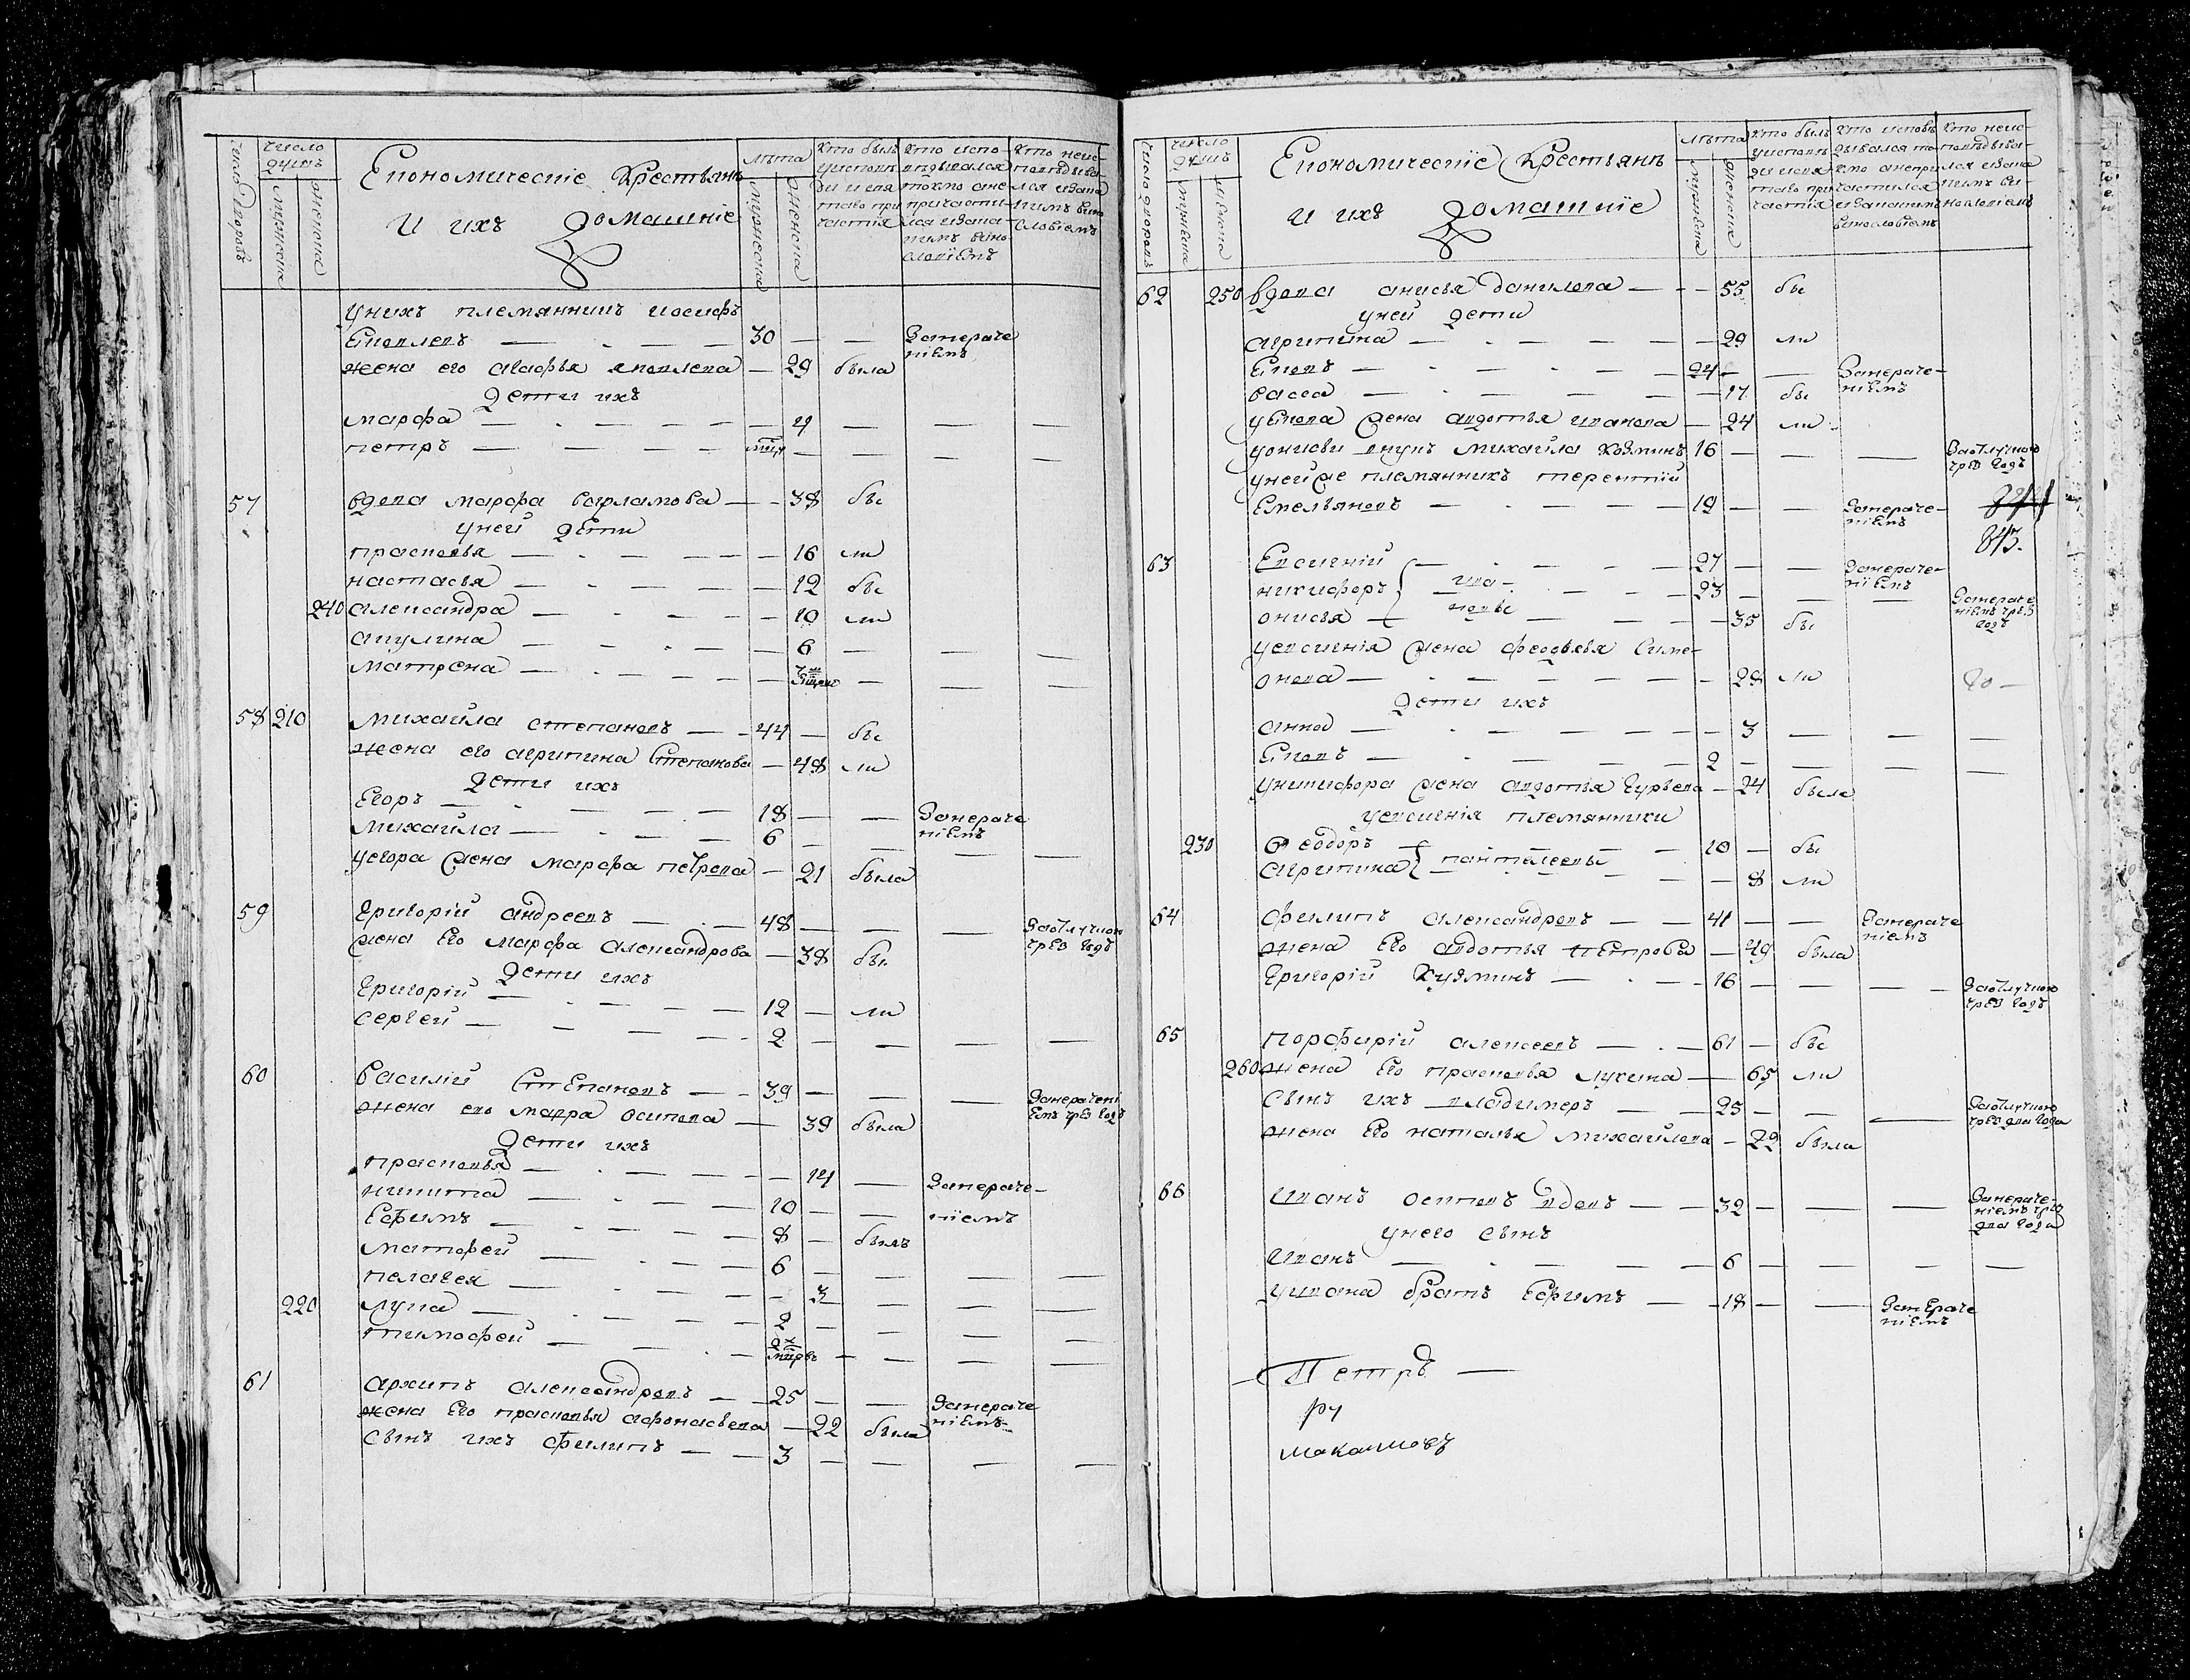 число дворовъ
число душъ
мужеска
женска
Економическіе Крестьянѣ
И ихъ домашніе
лѣта
мужеска
женска
Кто былъ уисповѣди и святаго причастія
Кто исповѣдывался токмо а не причастился и за какимъ винословіемъ
Кто неисповѣдывался и за какимъ винословіемъ
унихъ племянникъ иосифъ
Яковлевъ — — — — 30 — — Занераченіемъ
жена его агафья яковлева — 29 была
дети ихъ
марфа — — — — — 4 — — —
петръ — — — — — — —
57 вдова марфа варламова — — 38 бы
уней дети
прасковья — — — — — 16 ли
настасья — — — — — 12 бы
240 александра — — — — — 10 ли
акулина — — — — — 6 — — —
матрена — — — — — — —
58 210 михайла степановъ — — 44 — бы
жена его агрипина Степанова — 48 ли
дети ихъ
Егоръ — — — — 18 — — Занераченіемъ
михайла — — — — 6 — — — —
уегора жена марфа петрова — 21 была
59 Григорій андреевъ — — 48 — — — Заотлучкою чрез годъ
жена Его марфа александрова — 38 бы
дети ихъ
Григорій — — — — 12 — ли
сергей — — — — 2 — — — —
60 василий Степановъ — — 39 — — — Занераченіемъ чрез годъ
жена его мавра осипова — 39 была
дети ихъ
прасковья — — — — — 14 — Занераче-
никита — — — — 10 — — ніемъ
Ефимъ — — — — 8 — былъ
матфей — — — — 6 — — — —
пелагея — — — — — 3 — — —
220 лука — — — — 2 — — — —
тимофей — — — — — — — —
61 архипъ александровъ — 25 — — Занераченіемъ
жена Его прасковья афонасьева — 22 была
сынъ ихъ филипъ — — — 3 — — — —
число дворовъ
число душъ
мужеска
женска
Економическіе Крестьянѣ
И ихъ домашніе
лѣта
мужеска
женска
Кто былъ уисповѣди и святаго причастія
Кто исповѣдывался токмо а не причастился и за какимъ винословіемъ
Кто неисповѣдывался и за какимъ винословіемъ
62 250 вдова анисья данилова — — — 55 бы
уней дети
агрипина — — — — — 29 ли
Яковъ — — — — — 24 — — Занераченіемъ
васса — — — — — 17 бы
уякова жена авдотья иванова — 24 ли
уонисьи внукъ михайла козминъ 16 — — — Заотлучкою чрез годъ
унейже племянникъ терентій
Емельяновъ — — — — 19 — — Занераченіемъ
843.
63 Евсигній — — — — 27 — — Занераченіемъ
никифоръ ива- — — — 23 — — — Занераченіемъ чрез годъ
онисья новы — — — — 35 бы
уевсигнія жена федосья Симе-
онова — — — — — 28 ли
20 —
дети ихъ
анна — — — — — — 3 — — —
Яковъ — — — — — 2 — — — —
уникифора жена авдотья Гурьева — 24 была
уевсигнія племянники
230 Феодоръ — — — — 10 — бы
агрипина пантелеевы — — — 8 ли
64 филипъ александровъ — — 41 — — Занераченіемъ
жена Его авдотья петрова — 49 была
Григорій Кузминъ — — — 16 — — — — Заотлучкою чрез годъ
65 порфирій алексеевъ — — — 61 — бы
260 жена Его прасковья лукина — 65 ли
сынъ ихъ владимеръ — — 25 — — — Заотлучкою чрез два года
жена Его наталья михайлова — 29 была
66 иванъ осиповъ вдовъ — — 32 — — — Занераченіемъ чрез два года
унего сынъ
иванъ — — — — — 6 — — — —
уивана братъ Ефимъ — — 18 — — Занераченіемъ
— Петръ —
ру
макалловъ